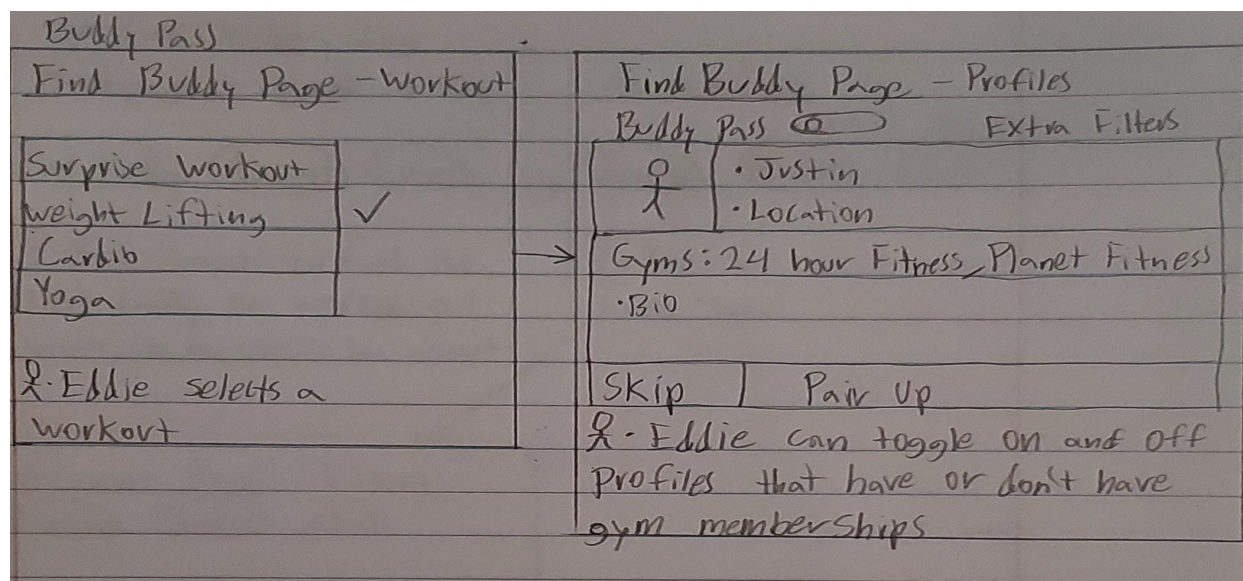 Buddy Pass
Find Buddy Page - Workout
Surprise Workout
Weight Lifting ✓
Cardio
Yoga
Eddie selects a
workout
Find Buddy Page - Profiles
Buddy Pass Extra Filters
• Justin
• Location
Gyms: 24 hour Fitness, Planet Fitness
• Bio
Skip Pair Up
• Eddie can toggle on and off
Profiles that have or don't have
gym memberships